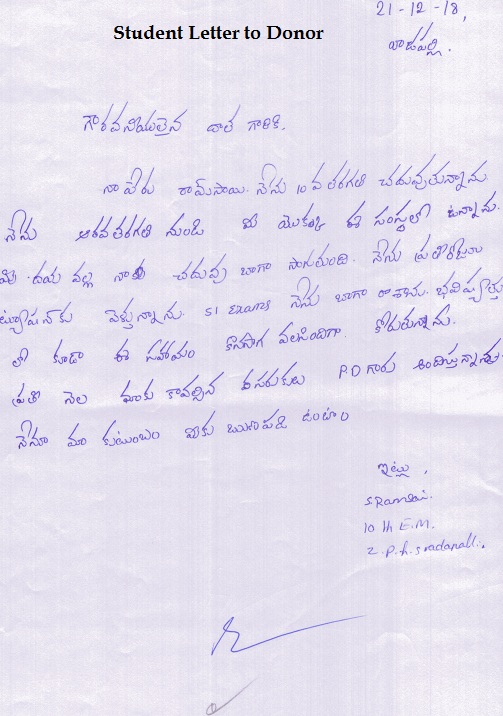 21-12-18,
Student Letter to Donor
వాడపల్లి.
గౌరవనీయులైన దాత గారికి.
నా పేరు రామ్‌సాయి. నేను 10వ తరగతి చదువుతున్నాను
నేను ఆరవతరగతి నుండి మీ యొక్క ఈ సంస్థలో ఉన్నాను.
మీ దయ వల్ల నాకు చదువు బాగా సాగుతుంది. నేను ప్రతిరోజు
ట్యూషన్‌కు వెళ్తున్నాను. S1 Exams నేను బాగా రాశాను. భవిష్యత్తు
లో కూడా ఈ సహాయం కొనసాగ వలసిందిగా కోరుతున్నాను.
ప్రతి నెల మాకు కావల్సిన సరుకులు P.D గారు అందిస్తున్నారు.
నేనూ మా కుటుంబం మీకు ఋణపడి ఉంటాం
ఇట్లు,
S.Ramsai.
10th E.M.
Z.P.H.S